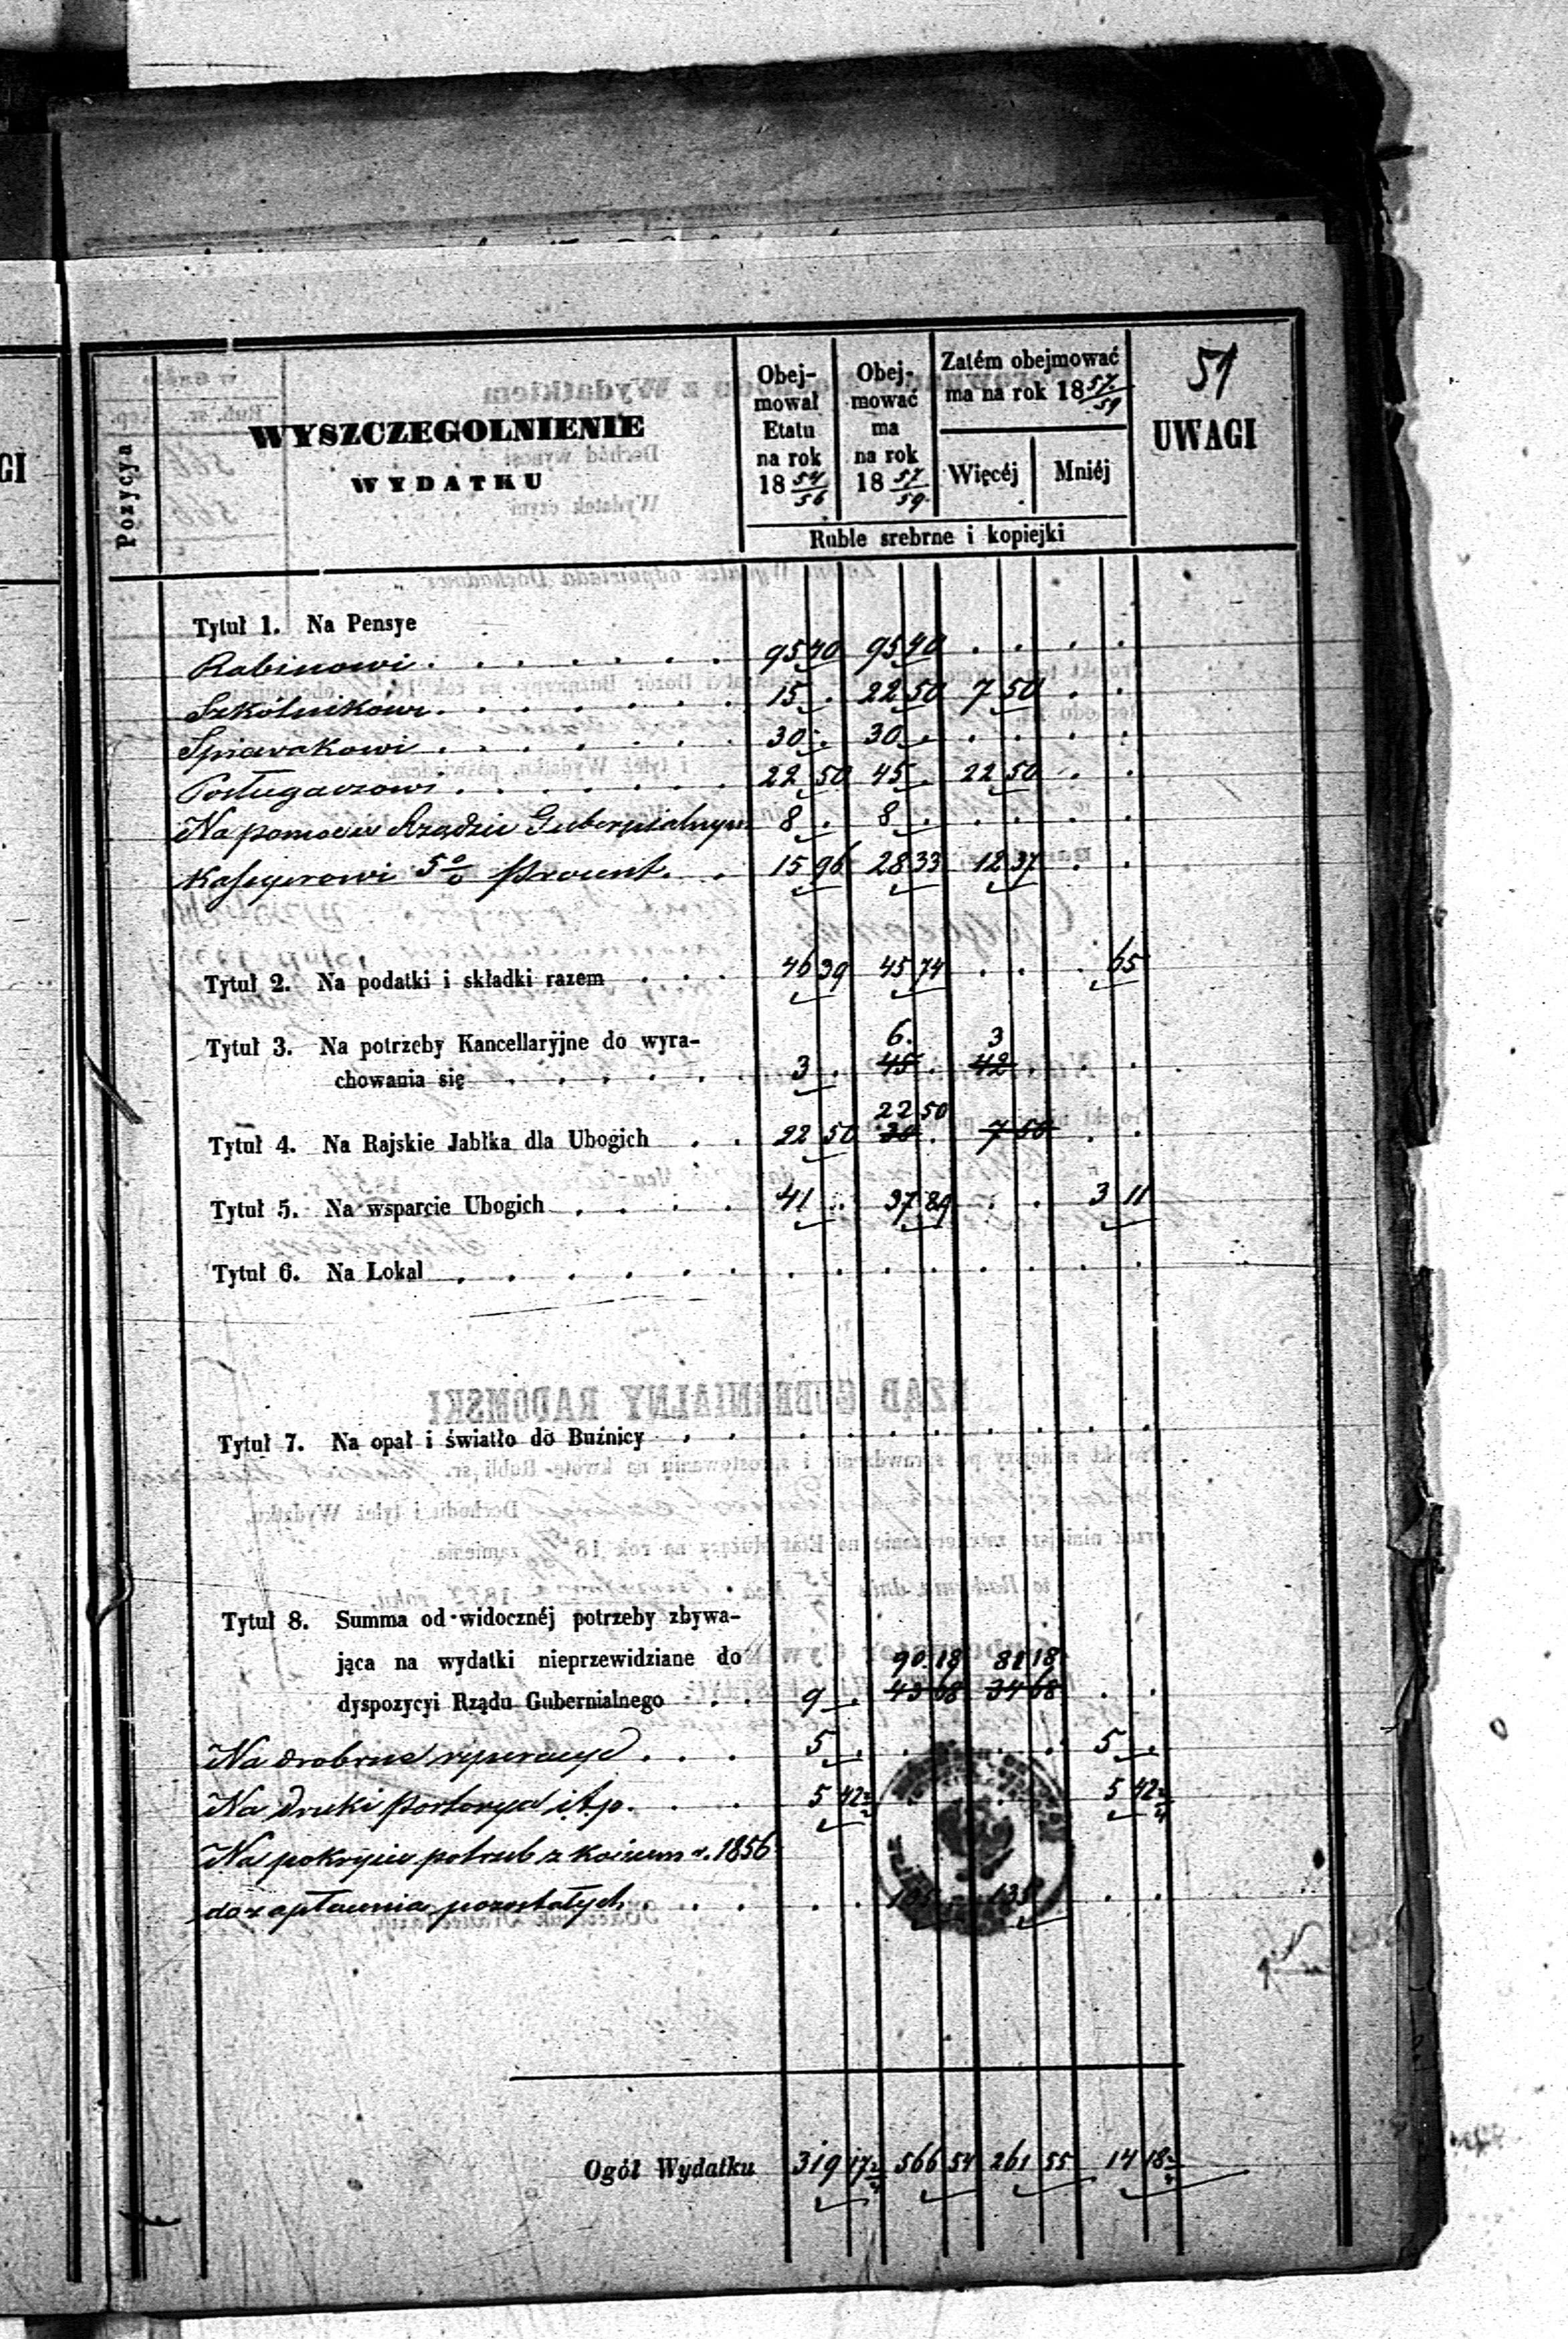 51
Pozycya
WYSZCZEGOLNIENIE
WYDATKU
Obej-
mował
Etatu
na rok
18 54/56
Obej-
mować
ma
na rok
18 57/59
Zatém obejmować
ma na rok 18 57/59
Więcéj
Mniéj
UWAGI
Ruble srebrne i kopiejki
Tytuł 1. Na Pensye
Rabinowi . . . . . . . 95 40 95 40 . . . .
Szkolnikowi . . . . . . . 15 . 22 50 7 50 . .
Spiewakowi . . . . . . . 30 . 30 . . . . .
Posługaczowi . . . . . . . 22 50 45 . 22 50 . .
Na pomoce w Rządzie Gubernialnym 8 . 8 . . . . .
Kassyerowi 5 % Procent . . 15 96 28 33 12 37 . .
Tytuł 2. Na podatki i składki razem . . . 46 39 45 74 . . . 65
6. 3
Tytuł 3. Na potrzeby Kancellaryjne do wyra-
chowania się . . . . . 3 . 45 . 42 . . .
22 50
Tytuł 4. Na Rajskie Jabłka dla Ubogich . . 22 50 30 . 7 50 . .
Tytuł 5. Na wsparcie Ubogich . . . . 41 . 37 89 . . 3 11
Tytuł 6. Na Lokal . . . . . . . . . . . . . .
Tytuł 7. Na opał i światło do Buźnicy . . . . . . . . . .
Tytuł 8. Summa od widocznéj potrzeby zbywa-
jąca na wydatki nieprzewidziane do 90 18 81 18
dyspozycyi Rządu Gubernialnego . . 9 . 43 68 34 68 . .
Na drobne reperacye . . . 5 . . . . . 5 .
Na druki portorya i t.p. . . . 5 42 2/4 . . . . 5 42 2/4
Na pokrycie potrzeb z końcem r. 1856
do zapłacenia pozostałych . . . . . 135 . 135 . . .
Ogół Wydatku 319 17 2/4 566 54 261 55 14 18 2/4